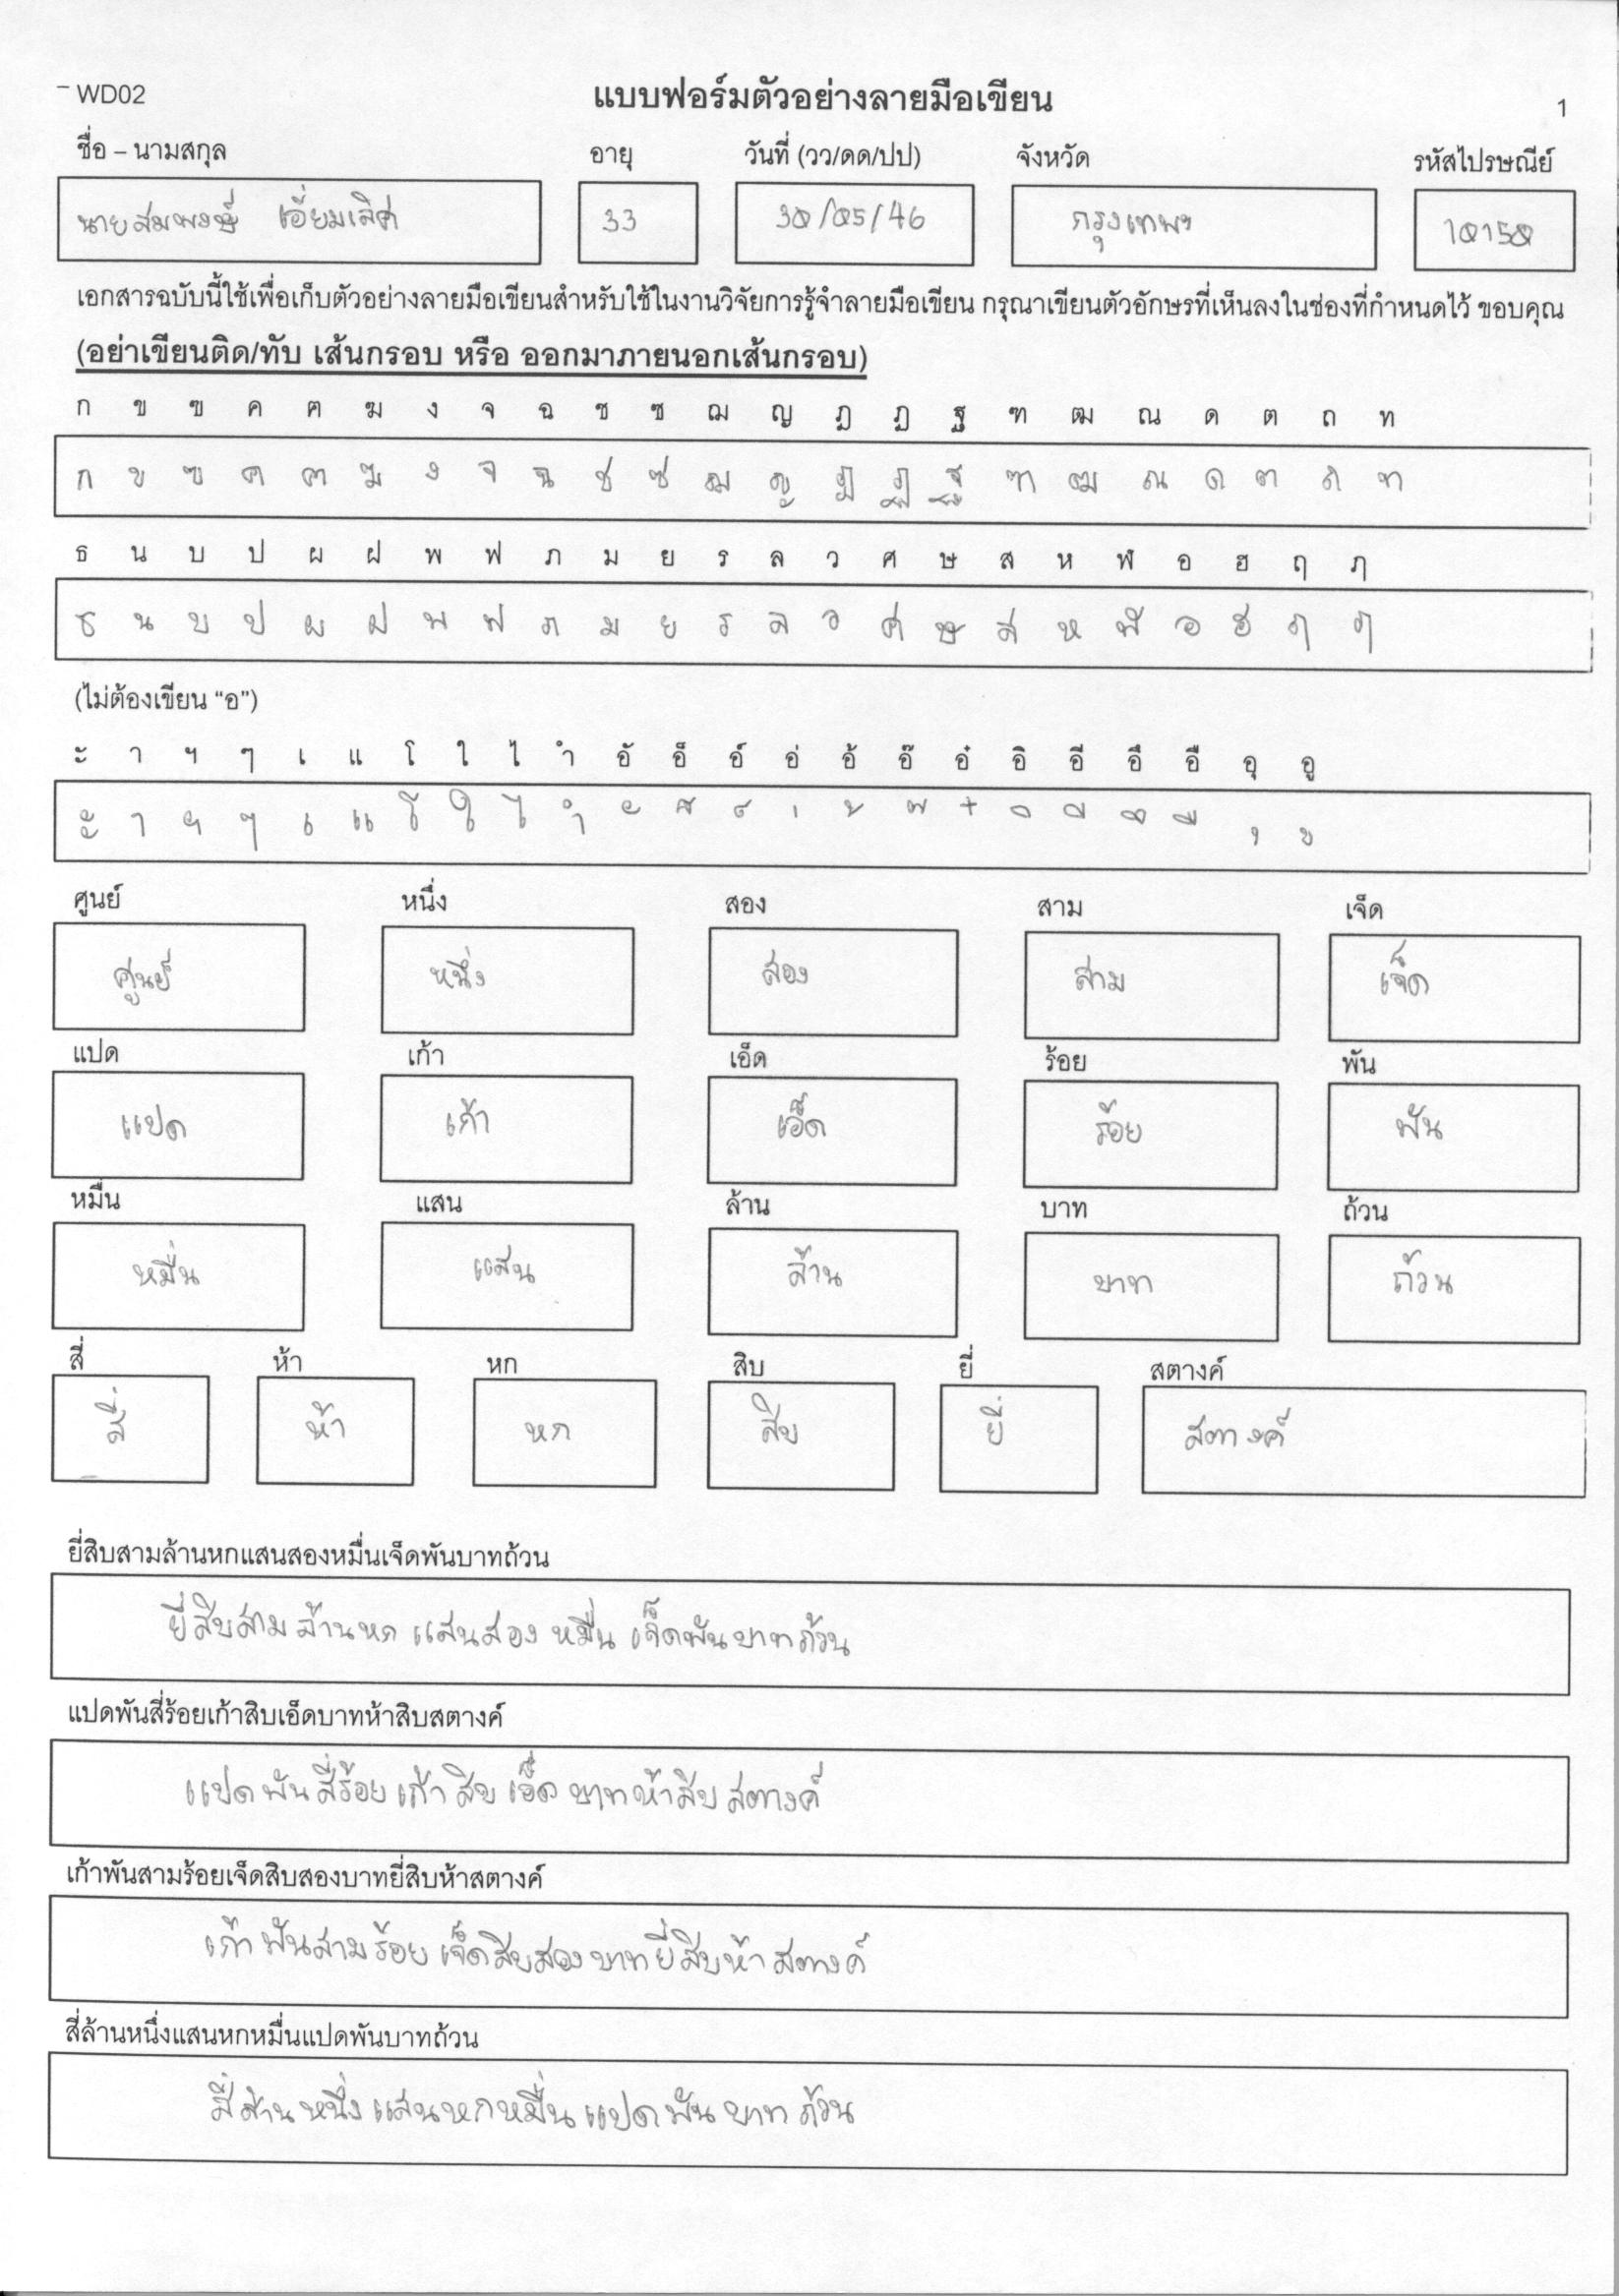 WD02 แบบฟอร์มตัวอย่างลายมือเขียน 1
ชื่อ – นามสกุล อายุ วันที่ (วว/ดด/ปป) จังหวัด รหัสไปรษณีย์
นายสมพงษ์ เอี่ยมเลิศ 33 30/05/46 กรุงเทพฯ 10150
เอกสารฉบับนี้ใช้เพื่อเก็บตัวอย่างลายมือเขียนสำหรับใช้ในงานวิจัยการรู้จำลายมือเขียน กรุณาเขียนตัวอักษรที่เห็นลงในช่องที่กำหนดไว้ ขอบคุณ
(อย่าเขียนติด/ทับ เส้นกรอบ หรือ ออกมาภายนอกเส้นกรอบ)
ก ข ฃ ค ฅ ฆ ง จ ฉ ช ซ ฌ ญ ฎ ฏ ฐ ฑ ฒ ณ ด ต ถ ท
ก ข ฃ ค ฅ ฆ ง จ ฉ ช ซ ฌ ญ ฎ ฏ ฐ ฑ ฒ ณ ด ต ถ ท
ธ น บ ป ผ ฝ พ ฟ ภ ม ย ร ล ว ศ ษ ส ห ฬ อ ฮ ฤ ฦ
ธ น บ ป ผ ฝ พ ฟ ภ ม ย ร ล ว ศ ษ ส ห ฬ อ ฮ ฤ ฦ
(ไม่ต้องเขียน “อ”)
ะ า ฯ ๆ เ แ โ ใ ไ ำ อั อ็ อ์ อ่ อ้ อ๊ อ๋ อิ อี อึ อื อุ อู
ะ า ฯ ๆ เ แ โ ใ ไ ำ ั ็ ์ ่ ้ ๊ ๋ ิ ี ึ ื ุ ู
ศูนย์ หนึ่ง สอง สาม เจ็ด
ศูนย์ หนึ่ง สอง สาม เจ็ด
แปด เก้า เอ็ด ร้อย พัน
แปด เก้า เอ็ด ร้อย พัน
หมื่น แสน ล้าน บาท ถ้วน
หมื่น แสน ล้าน บาท ถ้วน
สี่ ห้า หก สิบ ยี่ สตางค์
สี่ ห้า หก สิบ ยี่ สตางค์
ยี่สิบสามล้านหกแสนสองหมื่นเจ็ดพันบาทถ้วน
ยี่สิบสามล้านหกแสนสองหมื่นเจ็ดพันบาทถ้วน
แปดพันสี่ร้อยเก้าสิบเอ็ดบาทห้าสิบสตางค์
แปดพันสี่ร้อยเก้าสิบเอ็ดบาทห้าสิบสตางค์
เก้าพันสามร้อยเจ็ดสิบสองบาทยี่สิบห้าสตางค์
เก้าพันสามร้อยเจ็ดสิบสองบาทยี่สิบห้าสตางค์
สี่ล้านหนึ่งแสนหกหมื่นแปดพันบาทถ้วน
สี่ล้านหนึ่งแสนหกหมื่นแปดพันบาทถ้วน